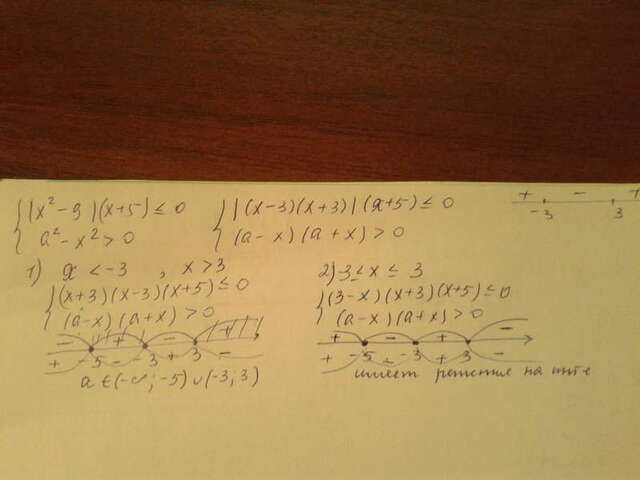 { |x² - 9|(x+5) ≤ 0
{ a² - x² > 0
{ |(x-3)(x+3)|(x+5) ≤ 0
{ (a-x)(a+x) > 0
+ - +
-3 3
1) x < -3 , x > 3
{ (x+3)(x-3)(x+5) ≤ 0
{ (a-x)(a+x) > 0
- + - +
+ -5 - -3 + 3 -
a ∈ (-∞; -5) ∪ (-3; 3)
2) -3 ≤ x ≤ 3
{ (3-x)(x+3)(x+5) ≤ 0
{ (a-x)(a+x) > 0
+ - + -
+ -5 - -3 + 3 -
имеет решение на инт-е